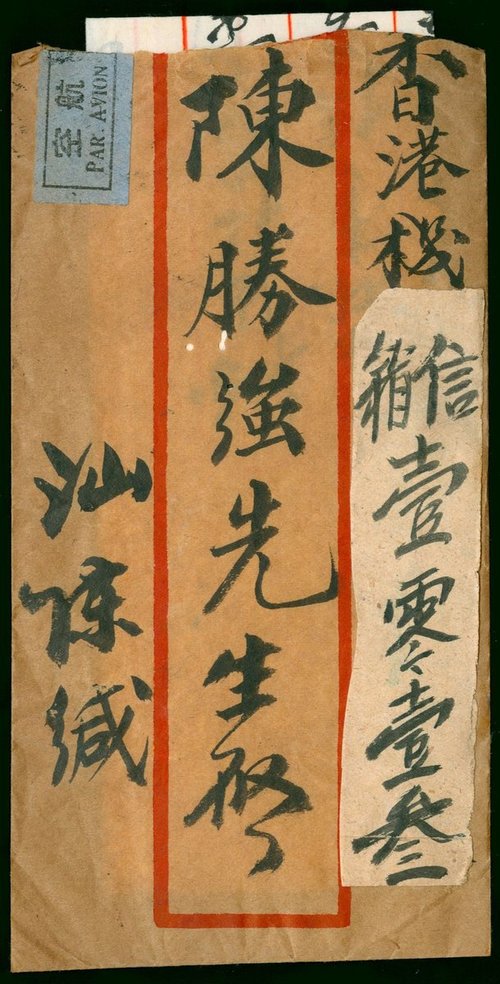 香港機
信箱壹零壹叁
陳勝強先生啓
汕陳緘
航空
PAR AVION